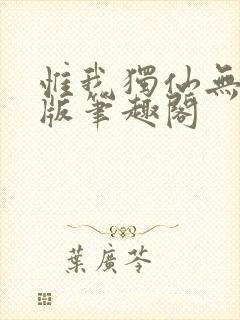 惟我獨仙無
版筆趣閣
葉廣芩